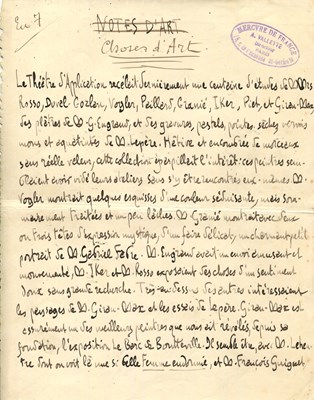 NOTES D'ART
Choses d'Art
MERCVRE DE FRANCE
A. VALLETTE
Le Théâtre d'Application recélait dernièrement une centaine d'études de MM.
Rosso, Dovel Coxlen, Vogler, Peillard, Granié, Iker, Piet, et Giran-Max
des plâtres de M. G. Engrand, et des gravures, pastels, pointes sèches vernis
mous et aquatintes de M. Lepère. Hâtive et encombrée de morceaux
sans réelle valeur, cette collection éparpillait l'intérêt: ces peintres sem-
blaient avoir vidé leurs ateliers sans s'y être rencontrés eux-mêmes. M.
Vogler montrait quelques esquisses d'une couleur séduisante, mais som-
mairement traitées et un peu lâches. M. Granié montrait avec deux
ou trois têtes d'expression mystique, d'un faire délicat, un charmant petit
portrait de M. Gabriel Fabre. M. Engrand avait un envoi amusant et
mouvementé, M. Iker et M. Rosso exposaient des choses d'un sentiment
doux sans grande recherche. Très au-dessus des autres intéressaient
les paysages de M. Giran-Max et les essais de Lepère. Giran-Max est
assurément un des meilleurs peintres que nous ait révélés, depuis sa
fondation, l'exposition Le Barc de Boutteville. Il semble être, avec M. Lehen-
tre dont on voit là une si belle Femme endormie, et M. François Guiguet